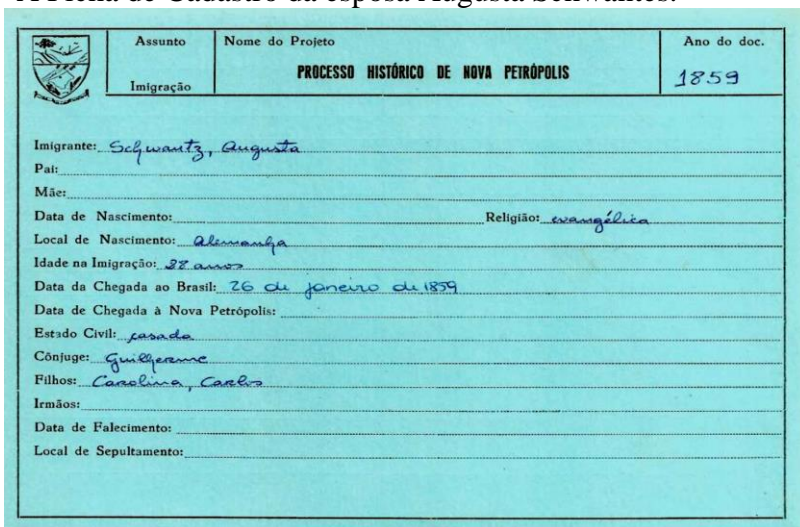 A Ficha de Cadastro da esposa Augusta Schwantes:
Assunto
Imigração
Nome do Projeto
PROCESSO HISTÓRICO DE NOVA PETRÓPOLIS
Ano do doc.
1859
Imigrante: Schwantz, Augusta
Pai:
Mãe:
Data de Nascimento: Religião: evangélica
Local de Nascimento: Alemanha
Idade na Imigração: 28 anos
Data da Chegada ao Brasil: 26 de janeiro de 1859
Data de Chegada à Nova Petrópolis:
Estado Civil: casada
Cônjuge: Guilherme
Filhos: Carolina, Carlos
Irmãos:
Data de Falecimento:
Local de Sepultamento: